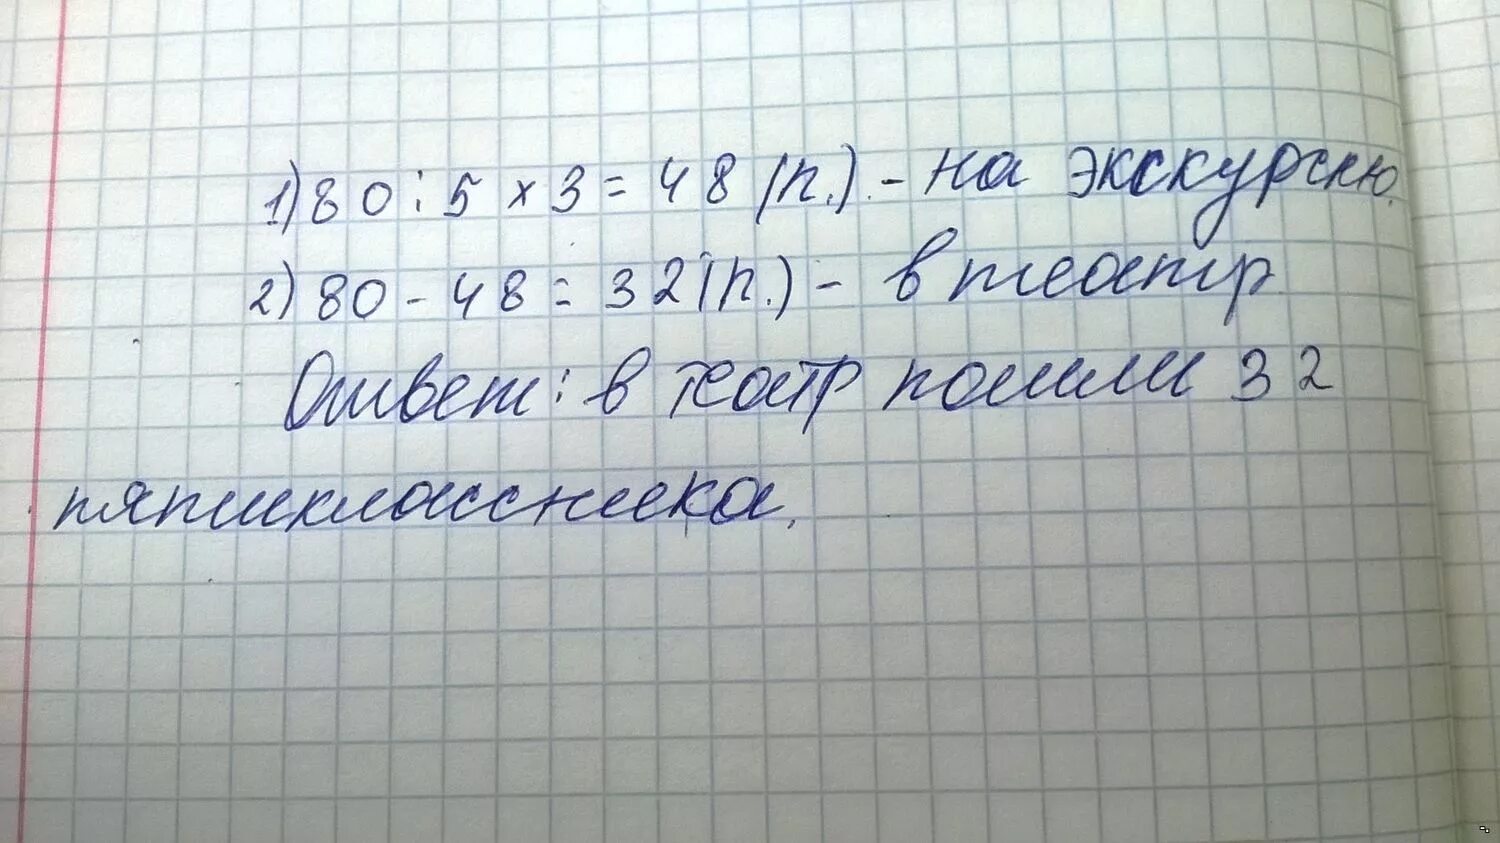 1) 80 : 5 × 3 = 48 (п.) - на экскурсию.
2) 80 - 48 = 32 (п.) - в театр
Ответ: в театр пошли 32
пятиклассника.